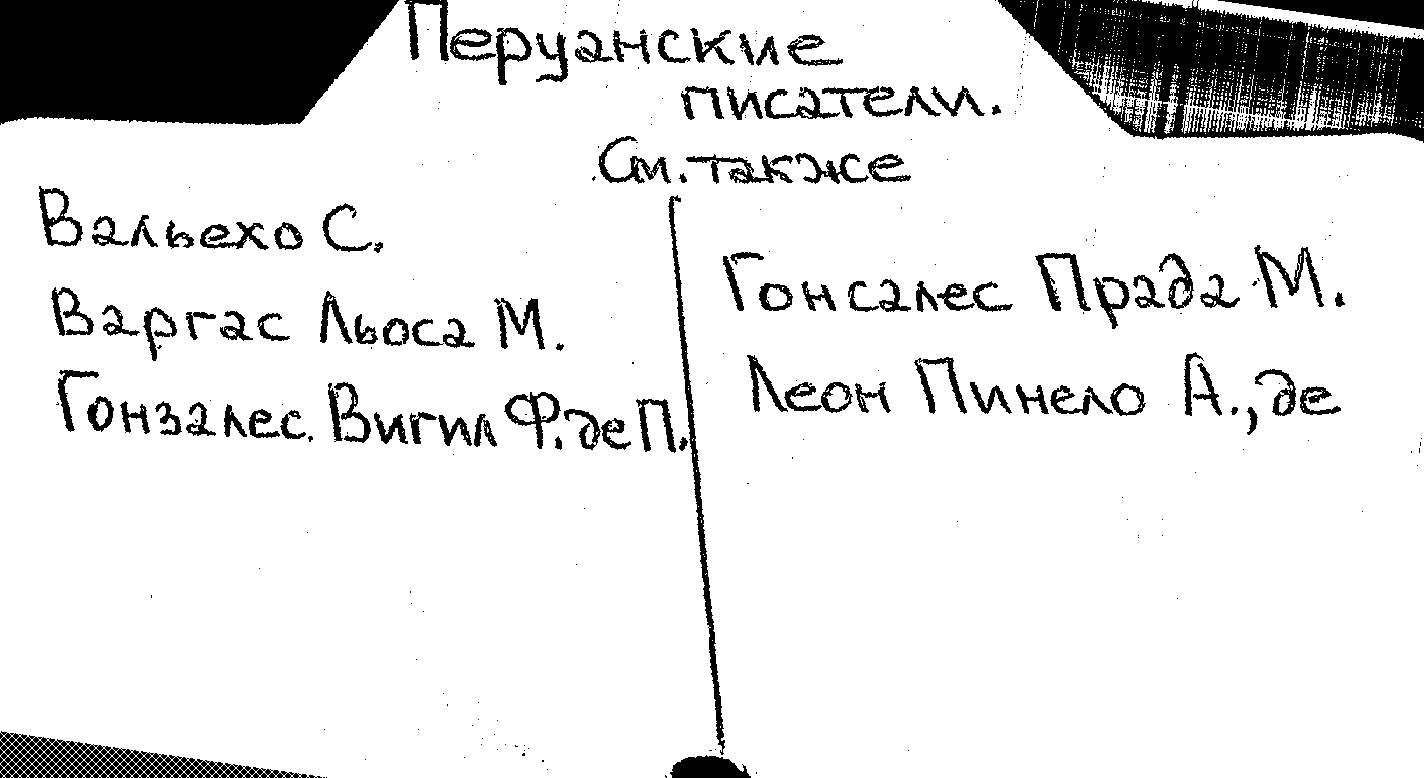 Перуанские
писатели.
См. также
Вальехо С.
Варгас Льоса М.
Гонзалес Вигил Ф. де П.
Гонсалес Прада М.
Леон Пинело А., де